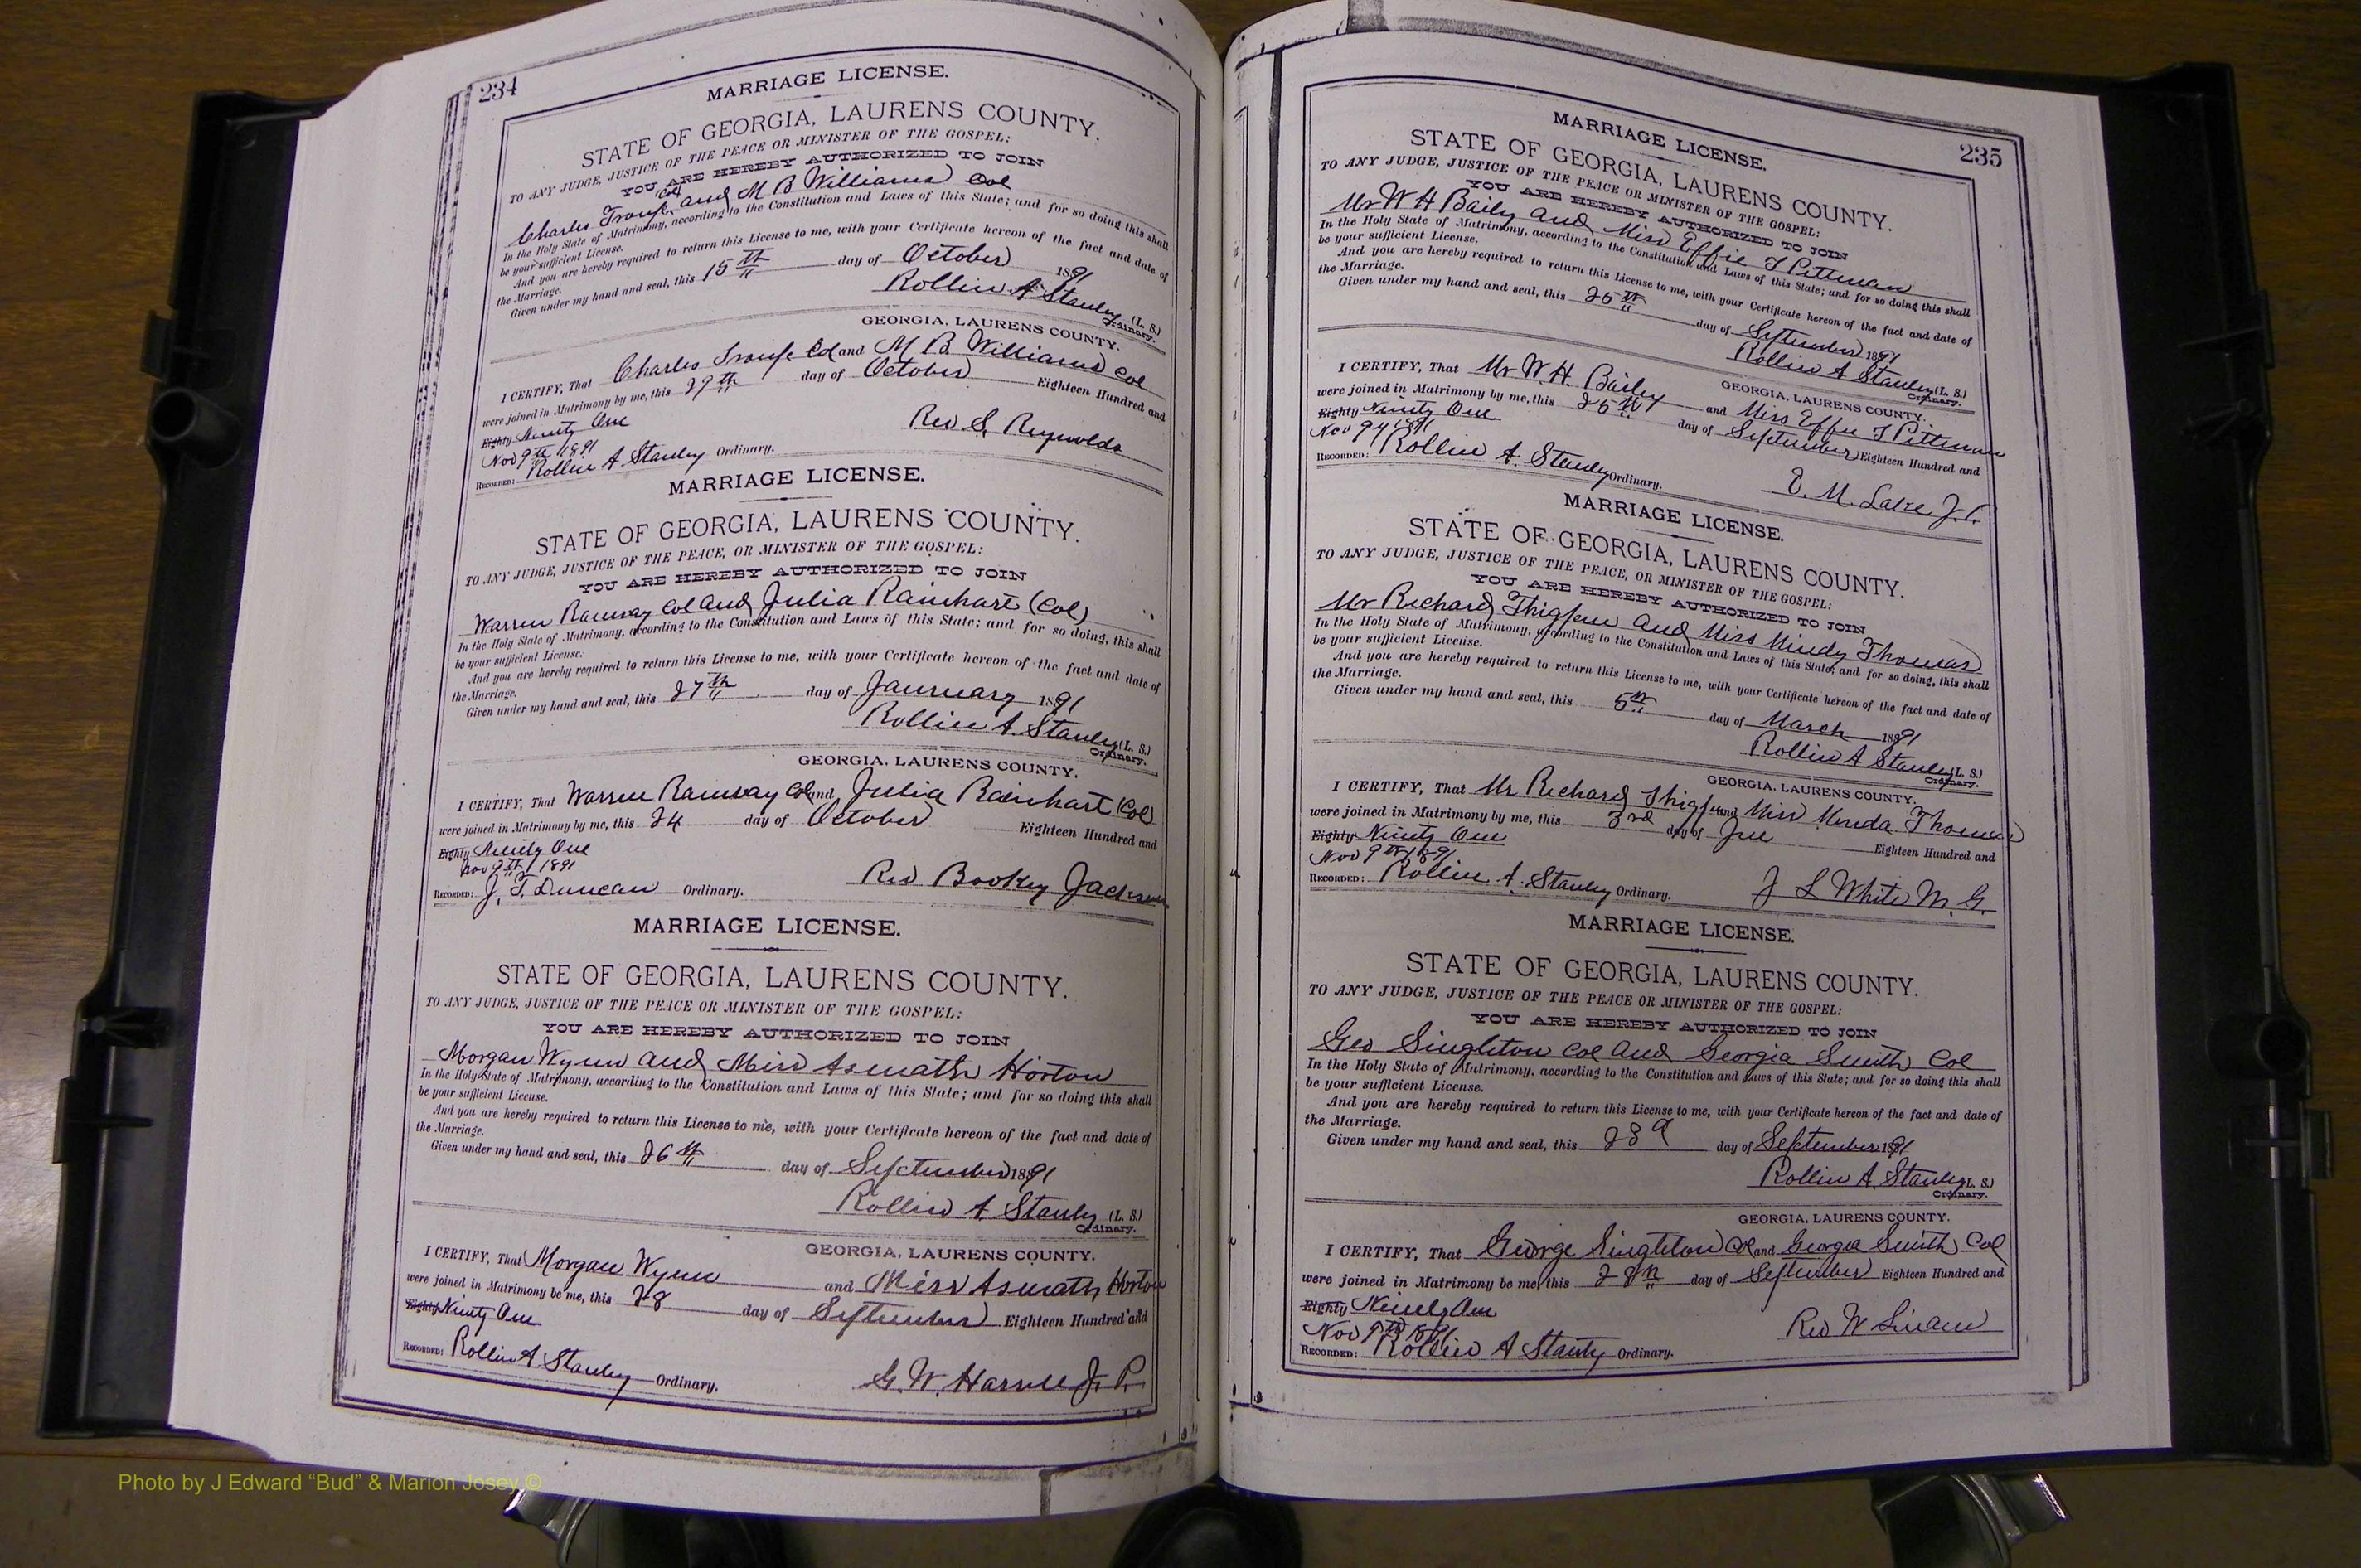 234
MARRIAGE LICENSE.
STATE OF GEORGIA, LAURENS COUNTY.
TO ANY JUDGE, JUSTICE OF THE PEACE OR MINISTER OF THE GOSPEL:
YOU ARE HEREBY AUTHORIZED TO JOIN
Charles Troup Col and M B Williams Col
In the Holy State of Matrimony, according to the Constitution and Laws of this State; and for so doing this shall
be your sufficient License.
And you are hereby required to return this License to me, with your Certificate hereon of the fact and date of
the Marriage.
Given under my hand and seal, this 15th day of October 1891
Rollin A Stanley (L. S.)
Ordinary.
GEORGIA, LAURENS COUNTY.
I CERTIFY, That Charles Troup Col and M B Williams Col
were joined in Matrimony by me, this 29th day of October Eighteen Hundred and
Eighty Ninety One
Nov 9th 1891 Rev S. Reynolds
RECORDED: Rollin A Stanley Ordinary.
MARRIAGE LICENSE.
STATE OF GEORGIA, LAURENS COUNTY.
TO ANY JUDGE, JUSTICE OF THE PEACE, OR MINISTER OF THE GOSPEL:
YOU ARE HEREBY AUTHORIZED TO JOIN
Warren Ramsay Col and Julia Rainhart (Col)
In the Holy State of Matrimony, according to the Constitution and Laws of this State; and for so doing, this shall
be your sufficient License.
And you are hereby required to return this License to me, with your Certificate hereon of the fact and date of
the Marriage.
Given under my hand and seal, this 27th day of January 1891
Rollin A. Stanley (L. S.)
Ordinary.
GEORGIA, LAURENS COUNTY.
I CERTIFY, That Warren Ramsay Col and Julia Rainhart (Col)
were joined in Matrimony by me, this 24 day of October Eighteen Hundred and
Eighty Ninety One
Nov 9th 1891
RECORDED: J. T. Duncan Ordinary. Rev Bookey Jackson
MARRIAGE LICENSE.
STATE OF GEORGIA, LAURENS COUNTY.
TO ANY JUDGE, JUSTICE OF THE PEACE OR MINISTER OF THE GOSPEL:
YOU ARE HEREBY AUTHORIZED TO JOIN
Morgan Wynn and Miss Asmath Horton
In the Holy State of Matrimony, according to the Constitution and Laws of this State; and for so doing this shall
be your sufficient License.
And you are hereby required to return this License to me, with your Certificate hereon of the fact and date of
the Marriage.
Given under my hand and seal, this 26th day of September 1891
Rollin A Stanley (L. S.)
Ordinary.
GEORGIA, LAURENS COUNTY.
I CERTIFY, That Morgan Wynn and Miss Asmath Horton
were joined in Matrimony be me, this 28 day of September Eighteen Hundred and
Eighty Ninety One
RECORDED: Rollin A Stanley Ordinary. G. W. Harvill J. P.
235
MARRIAGE LICENSE.
STATE OF GEORGIA, LAURENS COUNTY.
TO ANY JUDGE, JUSTICE OF THE PEACE OR MINISTER OF THE GOSPEL:
YOU ARE HEREBY AUTHORIZED TO JOIN
Mr W H Baily and Miss Effie T Pittman
In the Holy State of Matrimony, according to the Constitution and Laws of this State; and for so doing this shall
be your sufficient License.
And you are hereby required to return this License to me, with your Certificate hereon of the fact and date of
the Marriage.
Given under my hand and seal, this 25th day of September 1891
Rollin A Stanley (L. S.)
Ordinary.
GEORGIA, LAURENS COUNTY.
I CERTIFY, That Mr W. H. Bailey and Miss Effie T Pittman
were joined in Matrimony by me, this 25th day of September Eighteen Hundred and
Eighty Ninety One
Nov 9th 1891
RECORDED: Rollin A. Stanley Ordinary. E. M. Lake J. P.
MARRIAGE LICENSE.
STATE OF GEORGIA, LAURENS COUNTY.
TO ANY JUDGE, JUSTICE OF THE PEACE, OR MINISTER OF THE GOSPEL:
YOU ARE HEREBY AUTHORIZED TO JOIN
Mr Richard Thigpen and Miss Mindy Thomas
In the Holy State of Matrimony, according to the Constitution and Laws of this State; and for so doing, this shall
be your sufficient License.
And you are hereby required to return this License to me, with your Certificate hereon of the fact and date of
the Marriage.
Given under my hand and seal, this 5th day of March 1891
Rollin A Stanley (L. S.)
Ordinary.
GEORGIA, LAURENS COUNTY.
I CERTIFY, That Mr Richard Thigpen and Miss Menda Thomas
were joined in Matrimony by me, this 3rd day of Eighteen Hundred and
Eighty Ninety One
Nov 9th 1891
RECORDED: Rollin A. Stanley Ordinary. J L White M. G.
MARRIAGE LICENSE.
STATE OF GEORGIA, LAURENS COUNTY.
TO ANY JUDGE, JUSTICE OF THE PEACE OR MINISTER OF THE GOSPEL:
YOU ARE HEREBY AUTHORIZED TO JOIN
Geo Singleton Col and Georgia Smith Col
In the Holy State of Matrimony, according to the Constitution and Laws of this State; and for so doing this shall
be your sufficient License.
And you are hereby required to return this License to me, with your Certificate hereon of the fact and date of
the Marriage.
Given under my hand and seal, this 23d day of September 1891
Rollin A. Stanley (L. S.)
Ordinary.
GEORGIA, LAURENS COUNTY.
I CERTIFY, That George Singleton Col and Georgia Smith Col
were joined in Matrimony be me, this 28th day of September Eighteen Hundred and
Eighty Ninety One
Nov 9th 1891 Rev W
RECORDED: Rollin A Stanley Ordinary.
Photo by J Edward “Bud” & Marion Josey ©